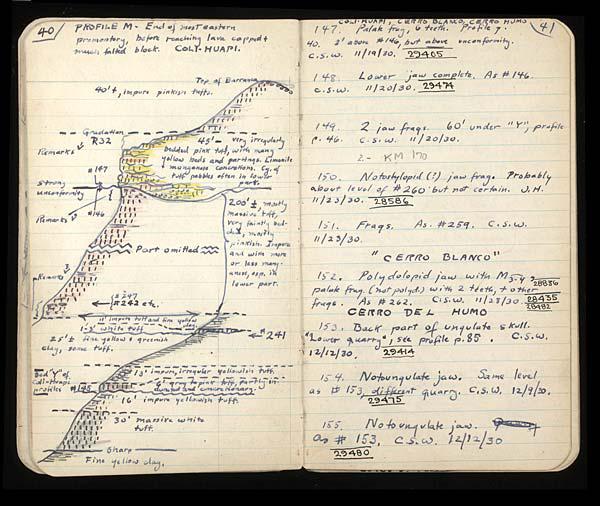 40/
PROFILE M - End of most eastern
promontory, before reaching lava capped &
much falted block. COLI-HUAPI.
Top of Barranca
40' ±, impure pinkish tuffs.
Gradation
R32
Remarks
45' — very irregularly
bedded pink tuff, with many
yellow beds and partings. Limonite
manganese concretions. Cg. of
tuff pebbles often in lower
part.
#147
Strong
unconformity
#146
Remarks
200' ± mostly
massive tuff,
very faintly bed-
ded, mostly
pinkish. Impure
and with more
or less mang-
anese, esp. in
lower part.
Part omitted
Remarks
#247
#242 etc.
11' impure tuff and fine yellow clay
1-3' white tuff
#241
25' ± fine yellow & greenish
clay, some tuff.
Bed "Y" of
Coli-Huapi
profiles
#145
13' impure, irregular yellowish tuff.
6' gray to pink tuff, partly in
16' impure yellowish tuff.
30' massive white
tuff.
Sharp
Fine yellow clay.
COLI-HUAPI, CERRO BLANCO, CERRO HUMO
41
147. Palak frag, 6 teeth. Profile p.
40. 2' above #146, but above unconformity.
C.S.W. 11/19/30. 29405
148. Lower jaw complete. As #146.
C.S.W. 11/20/30. 29474
149. 2 jaw frags. 60' under "Y", profile
p. 46. C.S.W. 11/20/30.
2 - KM 170
150. Notostylopid (?) jaw frag. Probably
about level of #260 but not certain. J.H.
11/23/30. 28586
151. Frags. As #259. C.S.W.
11/23/30.
"CERRO BLANCO"
152. Polydolopid jaw with M3-4 & 28836
palak frag. (not polyd.) with 2 teeth, & other
frags. As #262. C.S.W. 11/28/30. 28435
28482
CERRO DEL HUMO
153. Back part of ungulate skull.
"Lower quarry", see profile p. 85. C.S.W.
12/12/30. 29414
154. Notoungulate jaw. Same level
as #153, different quarry. C.S.W. 12/9/30.
29475
155. Notoungulate jaw.
as #153, C.S.W. 12/12/30
29480